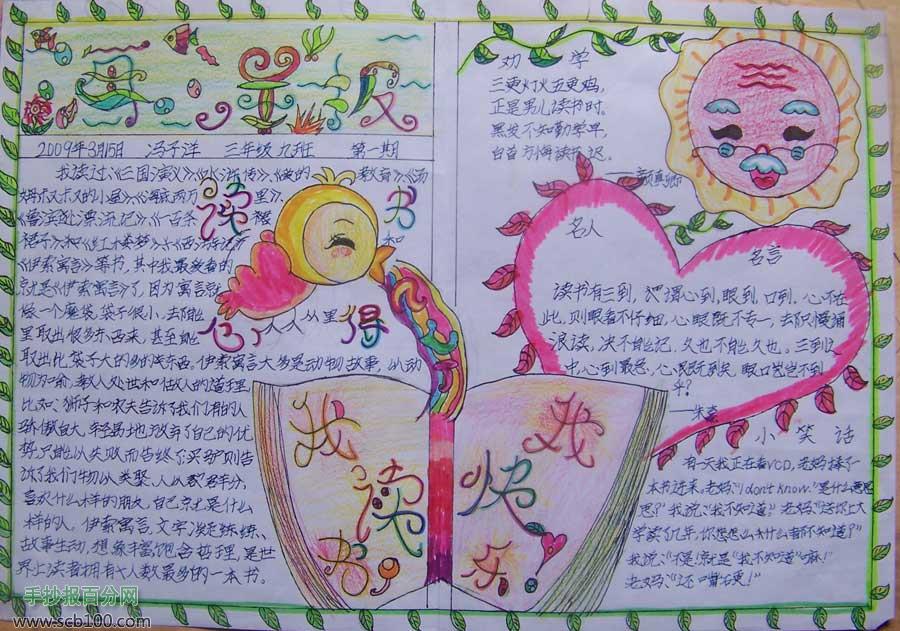 寻 书 报
2009年3月15日 冯子洋 三年级九班 第一期
读书心得
我读过《三国演义》、《水浒传》、《爱的教育》、《汤
姆叔叔的小屋》、《海底两万里》、
《鲁滨逊漂流记》、《百条裙
裙子》和《红楼梦》、《西游记》、
《伊索寓言》等书,其中我最爱看的
就是《伊索寓言》了,因为寓言就
像一个魔袋,袋子很小,却能从里
里取出很多东西来,甚至能
取出比袋子大的多的东西。伊索寓言大多是动物故事,以动
物为喻,教人处世和做人的道理
比如:狮子和农夫告诉了我们有的人
骄傲自大,轻易地放弃了自己的优
势,只能以失败而告终了。买驴则告
诉了我们物以类聚,人以群分,
喜欢什么样的朋友,自己就是什么
样的人。伊索寓言,文字凝练,
故事生动,想象丰富,饱含哲理,是世
界上读者拥有人数最多的一本书。
我读书
我快乐
劝 学
三更灯火五更鸡,
正是男儿读书时。
黑发不知勤学早,
白首方悔读书迟。
——颜真卿
名人
名言
读书有三到,谓心到,眼到,口到。心不在
此,则眼看不仔细,心眼既不专一,却只漫诵
浪读,决不能记,久也不能久也。三到之
中,心到最急,心既到矣,眼口岂不到
乎?
——朱熹
小 笑 话
有一天我正在看VCD,老妈捧了一
本书进来,老妈:"I don't know."是什么意思
思?"我说:"我不知道。"老妈:"送你上大
学读了几年,你怎么什么都不知道?"
我说:"不是!就是"我不知道"嘛!"
老妈:"还嘴硬!"
手抄报百分网
www.scb100.com